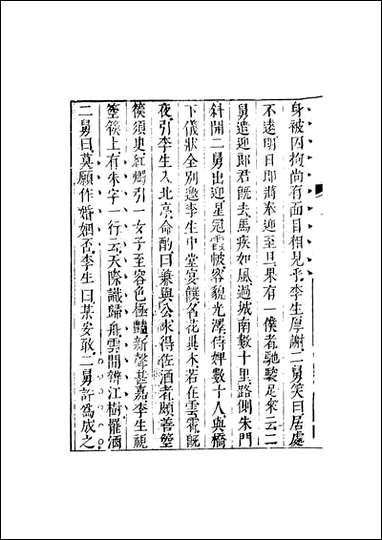 身被囚拘尚有面目相見乎李生厚謝二舅笑曰居處
不遠明日即當奉迎至旦果有一僕者馳駿足來云二
舅遣迎郎君既去馬疾如風過城南數十里路側朱門
斜開二舅出迎星冠霞帔容貌光澤侍婢數十人與橋
下儀狀全別邀李生中堂宴饌名花異木若在雲霄既
夜引李生入北亭命酌曰兼與公求得佐酒者頗善箜
篌須臾紅燭引一女子至容色極艷新聲甚嘉李生視
箜篌上有朱字一行云天際識歸舟雲間辨江樹罷酒
二舅曰莫願作婚姻否李生曰某安敢二舅許為成之